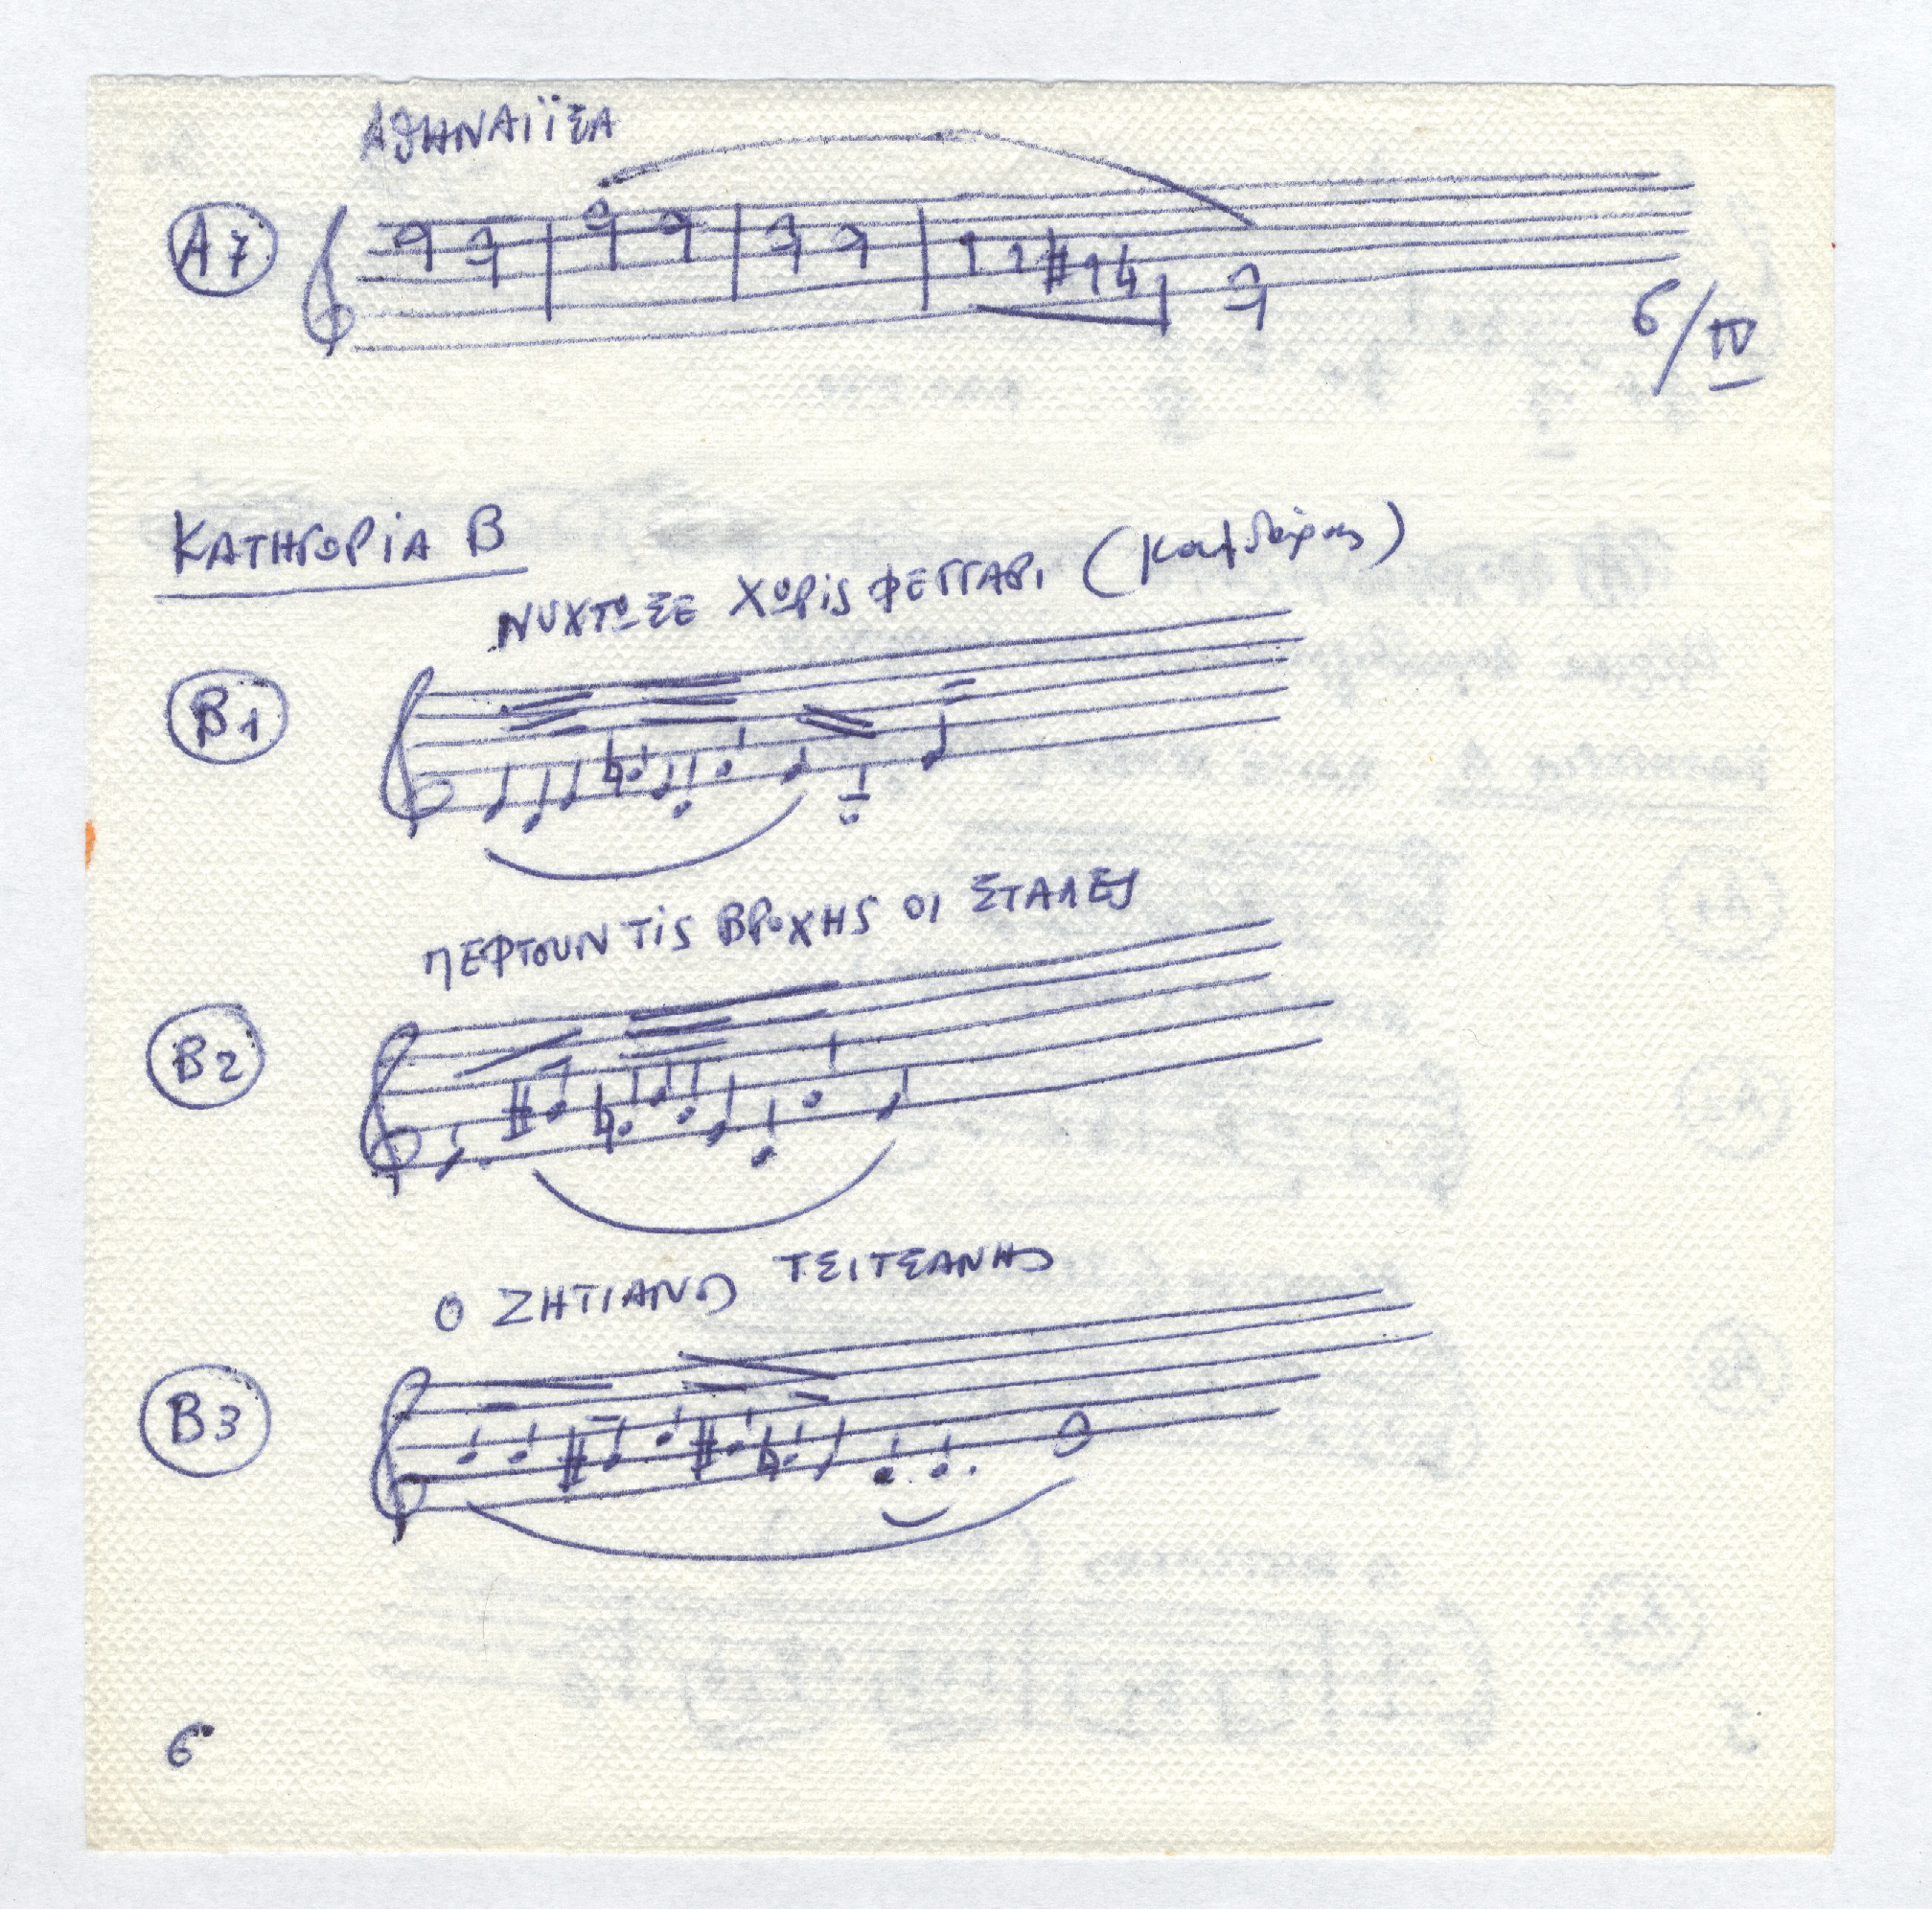 ΑΘΗΝΑΪΪΣΑ
Α7
6/IV
ΚΑΤΗΓΟΡίΑ Β
ΝΥΧΤΩΣΕ ΧΩΡίς ΦΕΓΓΑΡΙ (Καλδάρας)
Β1
ΠΕΦΤΟΥΝ Τίς ΒΡΟΧΗς ΟΙ ΣΤΑΛΕς
Β2
Ο ΖΗΤΙΑΝΟς ΤΣΙΤΣΑΝΗς
Β3
6